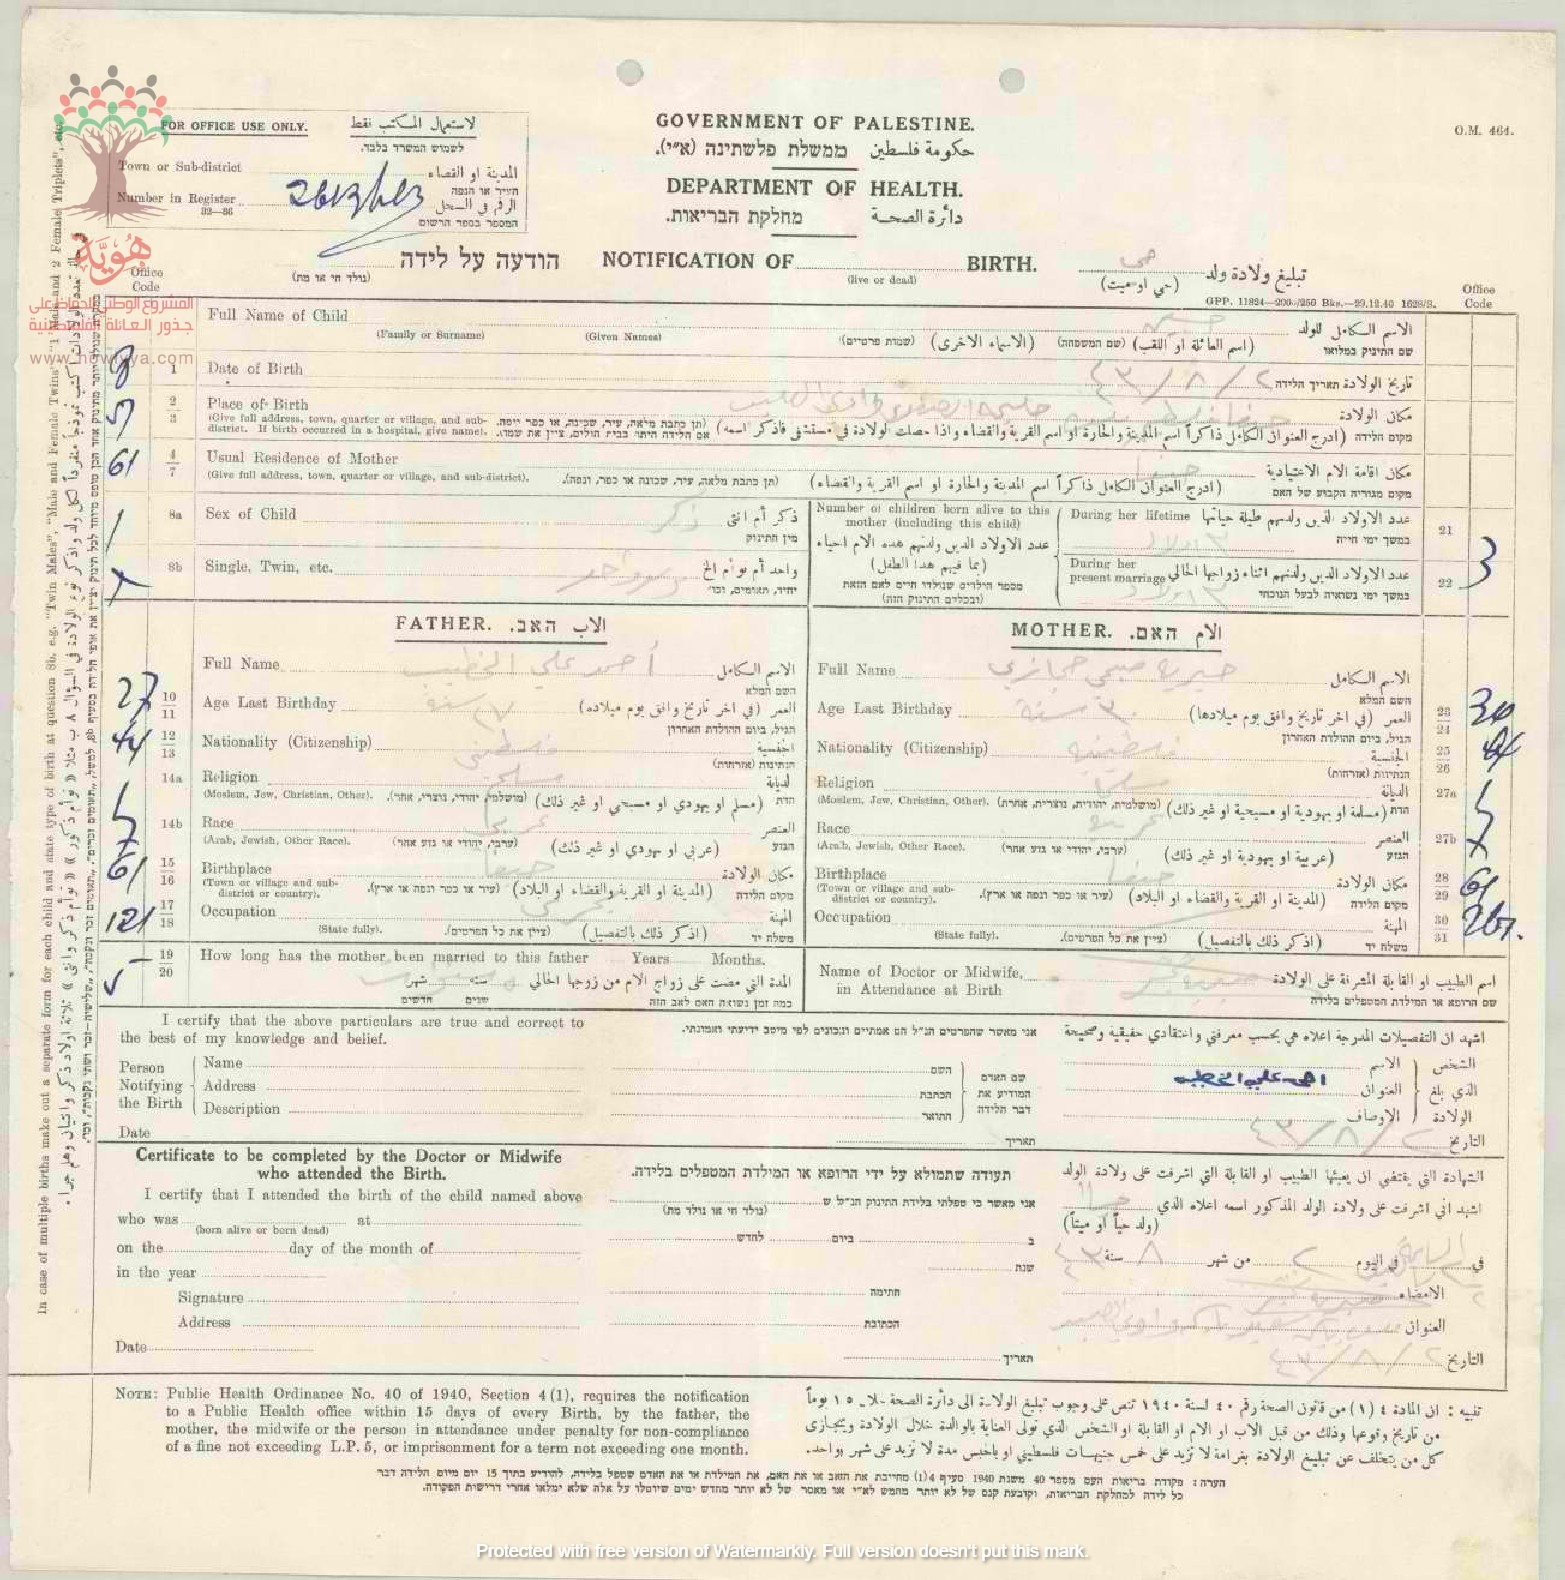 FOR OFFICE USE ONLY. لاستعمال المكتب فقط
לשמוש המשרד בלבד.
Town or Sub-district المدينة او القضاء
העיר או הנפה
Number in Register الرقم في السجل
32—36
המספר בספר הרשום
GOVERNMENT OF PALESTINE.
حكومة فلسطين ממשלת פלשתינה (א״י).
DEPARTMENT OF HEALTH.
دائرة الصحة מחלקת הבריאות.
O.M. 464.
הודעה על לידה NOTIFICATION OF BIRTH. تبليغ ولادة ولد حي
(נולד חי או מת) (live or dead) (حي او ميت)
GPP. 11824—200/250 Bks.—29.12.40 1628/S.
Office Code
Office Code
Full Name of Child الاسم الكامل للولد
(Family or Surname) (Given Names) (שמות פרטיים) (الاسماء الاخرى) (שם המשפחה) (اسم العائلة او اللقب) שם התינוק במלואו
8 1 Date of Birth ٢/٨/٤٣ تاريخ الولادة תאריך הלידה
57 2 3 Place of Birth مكان الولادة
(Give full address, town, quarter or village, and sub-district. If birth occurred in a hospital, give name).
(תן כתבת מלאה, עיר, שכונה, או כפר ונפה. אם הלידה היתה בבית חולים, ציין את שמו).
(ادرج العنوان الكامل ذاكراً اسم المدينة والحارة او اسم القرية والقضاء واذا حصلت الولادة في مستشفى فاذكر اسمه) מקום הלידה
61 4 7 Usual Residence of Mother حيفا مكان اقامة الام الاعتيادية
(Give full address, town, quarter or village, and sub-district). (תן כתבת מלאה, עיר, שכונה או כפר, ונפה). (ادرج العنوان الكامل ذاكراً اسم المدينة والحارة او اسم القرية والقضاء) מקום מגוריה הקבוע של האם
8a Sex of Child ذكر ذكر أم انثى
מין התינוק
8b Single, Twin, etc. واحد أم توأم الخ
יחיד, תאומים, וכו׳
Number of children born alive to this mother (including this child)
عدد الاولاد الذين ولدتهم هذه الام احياء
(بما فيهم هذا الطفل)
מספר הילדים שנולדו חיים לאם הזאת
(ובכללם התינוק הזה)
During her lifetime عدد الاولاد الذين ولدتهم طيلة حياتها 21
במשך ימי חייה
During her present marriage عدد الاولاد الذين ولدتهم اثناء زواجها الحالي 22 3
במשך ימי נשואיה לבעל הנוכחי
FATHER. האב. الاب
Full Name أحمد علي الخطيب الاسم الكامل
השם המלא
27 10 11 Age Last Birthday ٢٧ سنة العمر (في اخر تاريخ وافق يوم ميلاده)
הגיל, ביום ההולדת האחרון
44 12 13 Nationality (Citizenship) فلسطيني الجنسية
הנתינות (אזרחות)
14a Religion مسلم الديانة
(Moslem, Jew, Christian, Other). (מושלמי, יהודי, נוצרי, אחר). (مسلم او يهودي او مسيحي او غير ذلك) הדת
14b Race عربي العنصر
(Arab, Jewish, Other Race). (ערבי, יהודי או גזע אחר) (عربي او يهودي او غير ذلك) הגזע
61 15 16 Birthplace حيفا مكان الولادة
(Town or village and sub-district or country). (עיר או כפר ונפה או ארץ). (المدينة او القرية والقضاء او البلاد) מקום הלידה
121 17 18 Occupation المهنة
(State fully). (ציין את כל הפרטים). (اذكر ذلك بالتفصيل) משלח יד
19 20 How long has the mother been married to this father Years Months.
المدة التي مضت على زواج الام من زوجها الحالي سنة شهر
כמה זמן נשואה האם לאב הזה שנים חדשים
MOTHER. האם. الام
Full Name خيرية صبحي حجازي الاسم الكامل
השם המלא
Age Last Birthday ٣٠ سنة العمر (في اخر تاريخ وافق يوم ميلادها) 23 24 30
הגיל, ביום ההולדת האחרון
Nationality (Citizenship) فلسطينية الجنسية 25 26 44
הנתינות (אזרחות)
Religion مسلمة الديانة 27a
(Moslem, Jew, Christian, Other). (מושלמית, יהודית, נוצרית, אחרת) (مسلمة او يهودية او مسيحية او غير ذلك) הדת
Race عربية العنصر 27b
(Arab, Jewish, Other Race). (ערבי, יהודי או גזע אחר) (عربية او يهودية او غير ذلك) הגזע
Birthplace حيفا مكان الولادة 28 29 61
(Town or village and sub-district or country). (עיר או כפר ונפה או ארץ). (المدينة او القرية والقضاء او البلاد) מקום הלידה
Occupation المهنة 30 31
(State fully). (ציין את כל הפרטים). (اذكر ذلك بالتفصيل) משלח יד
Name of Doctor or Midwife, in Attendance at Birth
اسم الطبيب او القابلة المشرفة على الولادة
שם הרופא או המילדת המטפלים בלידה
I certify that the above particulars are true and correct to the best of my knowledge and belief.
אני מאשר שהפרטים הנ״ל הם אמתיים ונכונים לפי מיטב ידיעתי ואמונתי.
اشهد ان التفصيلات المدرجة اعلاه هي بحسب معرفتي واعتقادي حقيقية وصحيحة
Person Notifying the Birth
Name השם الاسم
Address הכתבת العنوان احمد علي الخطيب
Description התואר الاوصاف
שם האדם המודיע את דבר הלידה
الشخص الذي بلغ الولادة
Date תאריך التاريخ ٢/٨/٤٣
Certificate to be completed by the Doctor or Midwife who attended the Birth.
תעודה שתמולא על ידי הרופא או המילדת המטפלים בלידה.
الشهادة التي يقتضي ان يعبئها الطبيب او القابلة التي اشرفت على ولادة الولد
I certify that I attended the birth of the child named above
אני מאשר כי טפלתי בלידת התינוק הנ״ל ש
اشهد اني اشرفت على ولادة الولد المذكور اسمه اعلاه الذي
who was at
(born alive or born dead) (נולד חי או נולד מת) (ولد حياً او ميتاً)
on the day of the month of
ב ביום לחדש
في في اليوم ٢ من شهر ٨ سنة ٤٣
in the year שנת
Signature חתימה الامضاء
Address הכתובת العنوان
Date תאריך التاريخ ٢/٨/٤٣
NOTE: Public Health Ordinance No. 40 of 1940, Section 4(1), requires the notification
to a Public Health office within 15 days of every Birth, by the father, the
mother, the midwife or the person in attendance under penalty for non-compliance
of a fine not exceeding L.P. 5, or imprisonment for a term not exceeding one month.
تنبيه : ان المادة ٤ (١) من قانون الصحة رقم ٤٠ لسنة ١٩٤٠ تنص على وجوب تبليغ الولادة الى دائرة الصحة خلال ١٥ يوماً
من تاريخ وقوعها وذلك من قبل الاب او الام او القابلة او الشخص الذي تولى العناية بالوالدة خلال الولادة ويجازى
كل من يتخلف عن تبليغ الولادة بغرامة لا تزيد على خمس جنيهات فلسطيني او بالحبس مدة لا تزيد على شهر واحد.
הערה: פקודת בריאות העם מספר 40 משנת 1940 סעיף 4(1) מחייבת את האב או את האם, את המילדת או את האדם שטפל בלידה, להודיע בתוך 15 יום מיום הלידה דבר
כל לידה למחלקת הבריאות, וקובעת קנס של לא יותר מחמש לא״י או מאסר של לא יותר מחדש ימים שיוטלו על אלה שלא ימלאו אחרי דרישות הפקודה.
In case of multiple births make out a separate form for each child and state type of birth at question 8b, e.g. "Twin Males", "Male and Female Twins", "1 Male and 2 Female Triplets", etc.
هُوِيّة
المشروع الوطني للحفاظ على
جذور العائلة الفلسطينية
www.howiyya.com
Protected with free version of Watermarkly. Full version doesn't put this mark.